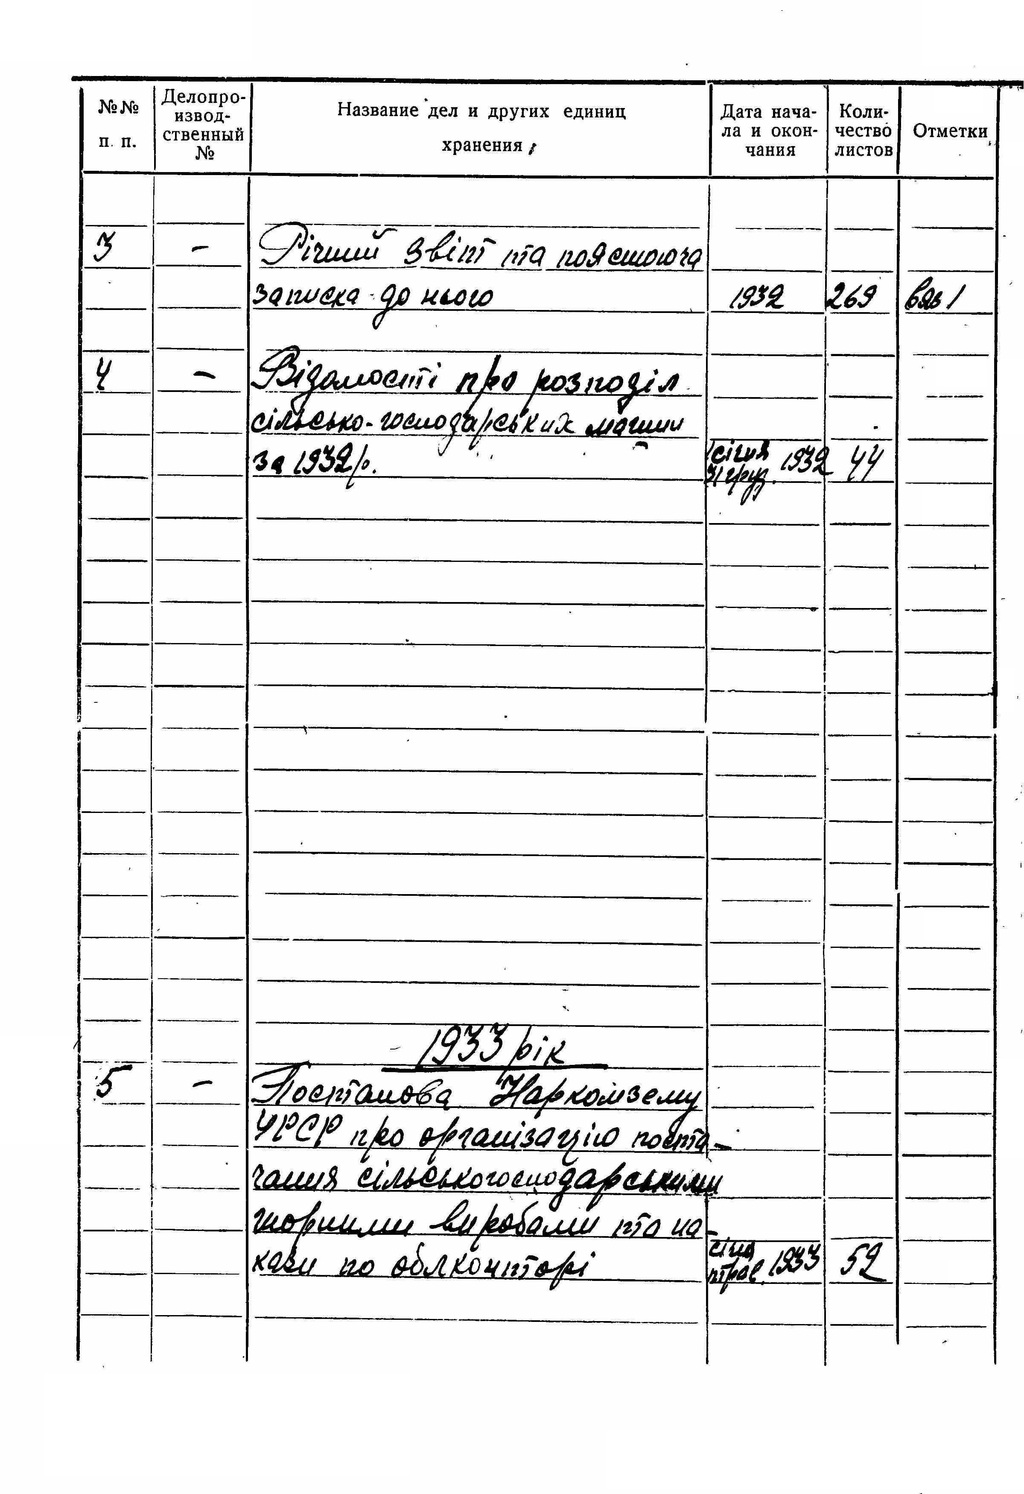 №№ п. п.
Делопро-
извод-
ственный
№
Название дел и других единиц
хранения
Дата нача-
ла и окон-
чания
Коли-
чество
листов
Отметки
3 - Річний звіт та пояснююча
записка до нього 1932 269
4 - Відомості про розподіл
сільсько-господарських машин
за 1932 р. 1 січня 31 груд. 1932 44
1933 рік
5 - Постанова Наркомзему
УРСР про організацію поста-
чання сільськогосподарськими
виробами та на-
кази по облконторі січ. трав. 1933 52